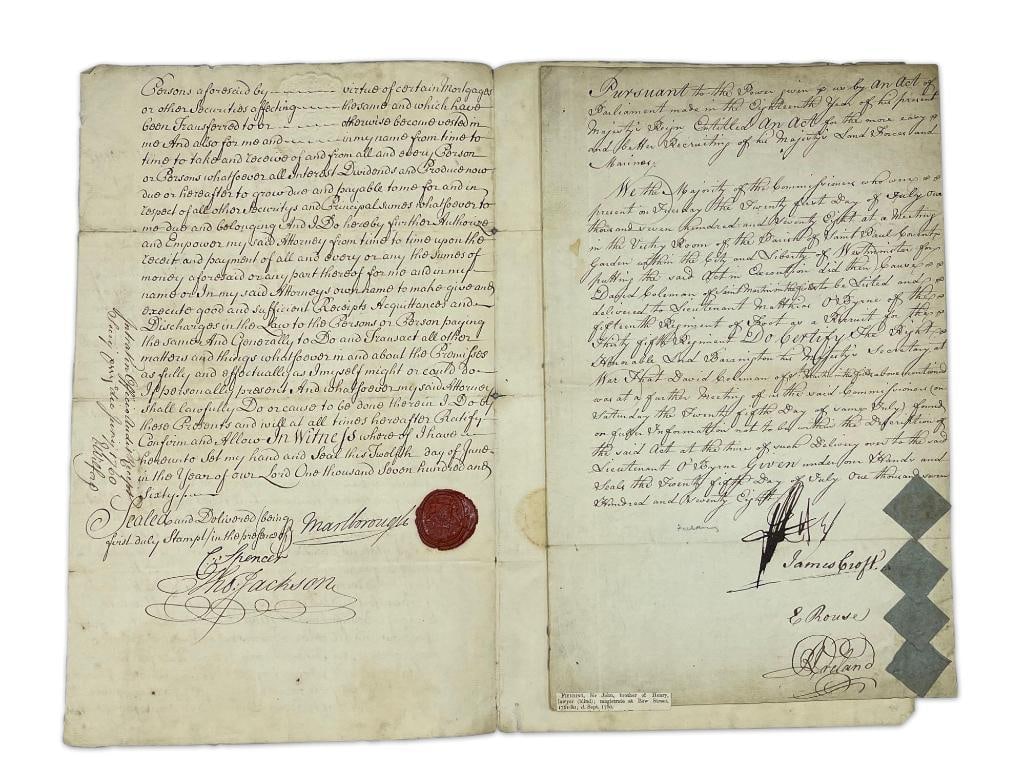 Persons aforesaid by virtue of certain Mortgages
or other Securities affecting the same and which have
been Transferred to or otherwise become vested in
me And also for me and in my name from time to
time to take and receive of and from all and every Person
or Persons whatsoever all Interest Dividends and Produce now
due or hereafter to grow due and payable to me for and in
respect of all other Securitys and Principal sumes whatsoever to
me due and belonging And I Do hereby further Authorize
and Empower my said Attorney from time to time upon the
receit and payment of all and every or any the sumes of
money aforesaid or any part thereof for me and in my
name or In my said Attorneys own name to make give and
execute good and sufficient Receipts Acquittances and
Discharges in the Law to the Persons or Person paying
the same And Generally to Do and Transact all other
matters and things whatsoever in and about the Premisses
as fully and effectually as I myself might or could do
If personally present And whatsoever my said Attorney
Shall lawfully Do or cause to be done therein I Do by
these Presents and will at all times hereafter Ratify
Confirm and Allow In Witness whereof I have
hereunto Set my hand and Seal this Twelfth day of June
in the Year of our Lord One thousand Seven hundred and
Sixty
Sealed and Delivered (being
first duly Stampt) in the presence of
Marlborough
C. Spencer
Tho. Jackson
Pursuant to the Power given us by An Act of
Parliament made in the Eighteenth Year of his present
Majesty's Reign Entitled An Act for the more easy
and better Recruiting of his Majesty's Land Forces and
Marines.
We the Majority of the Commissioners who were
present on Tuesday the Twenty first Day of July One
thousand seven hundred and Seventy Eight at a Meeting
in the Vestry Room of the Parish of Saint Paul Covent
Garden within the City and Liberty of Westminster for
putting the said Act in Execution did then Cause
David Coleman of Saint Martin in the fields to be Listed and
delivered to Lieutenant Matthias O'Byrne of the
fifteenth Regiment of Foot as a Recruit for the
thirty fifth Regiment Do Certify The Right
Honorable Lord Barrington his Majesty's Secretary at
War That David Coleman of St Martin in the fields above mentioned
was at a further Meeting of us the said Commissioners (on
Saturday the Twenty fifth Day of same July) found
on fuller Information not to be within the Description of
the said Act at the time of such Delivery over to the said
Lieutenant O'Byrne Given under our Hands and
Seals the Twenty fifth Day of July One thousand seven
Hundred and Seventy Eight
Fielding
James Croft
E Rouse
Ireland
FIELDING, Sir John, brother of Henry,
lawyer (blind); magistrate at Bow Street,
d. Sept. 1780.